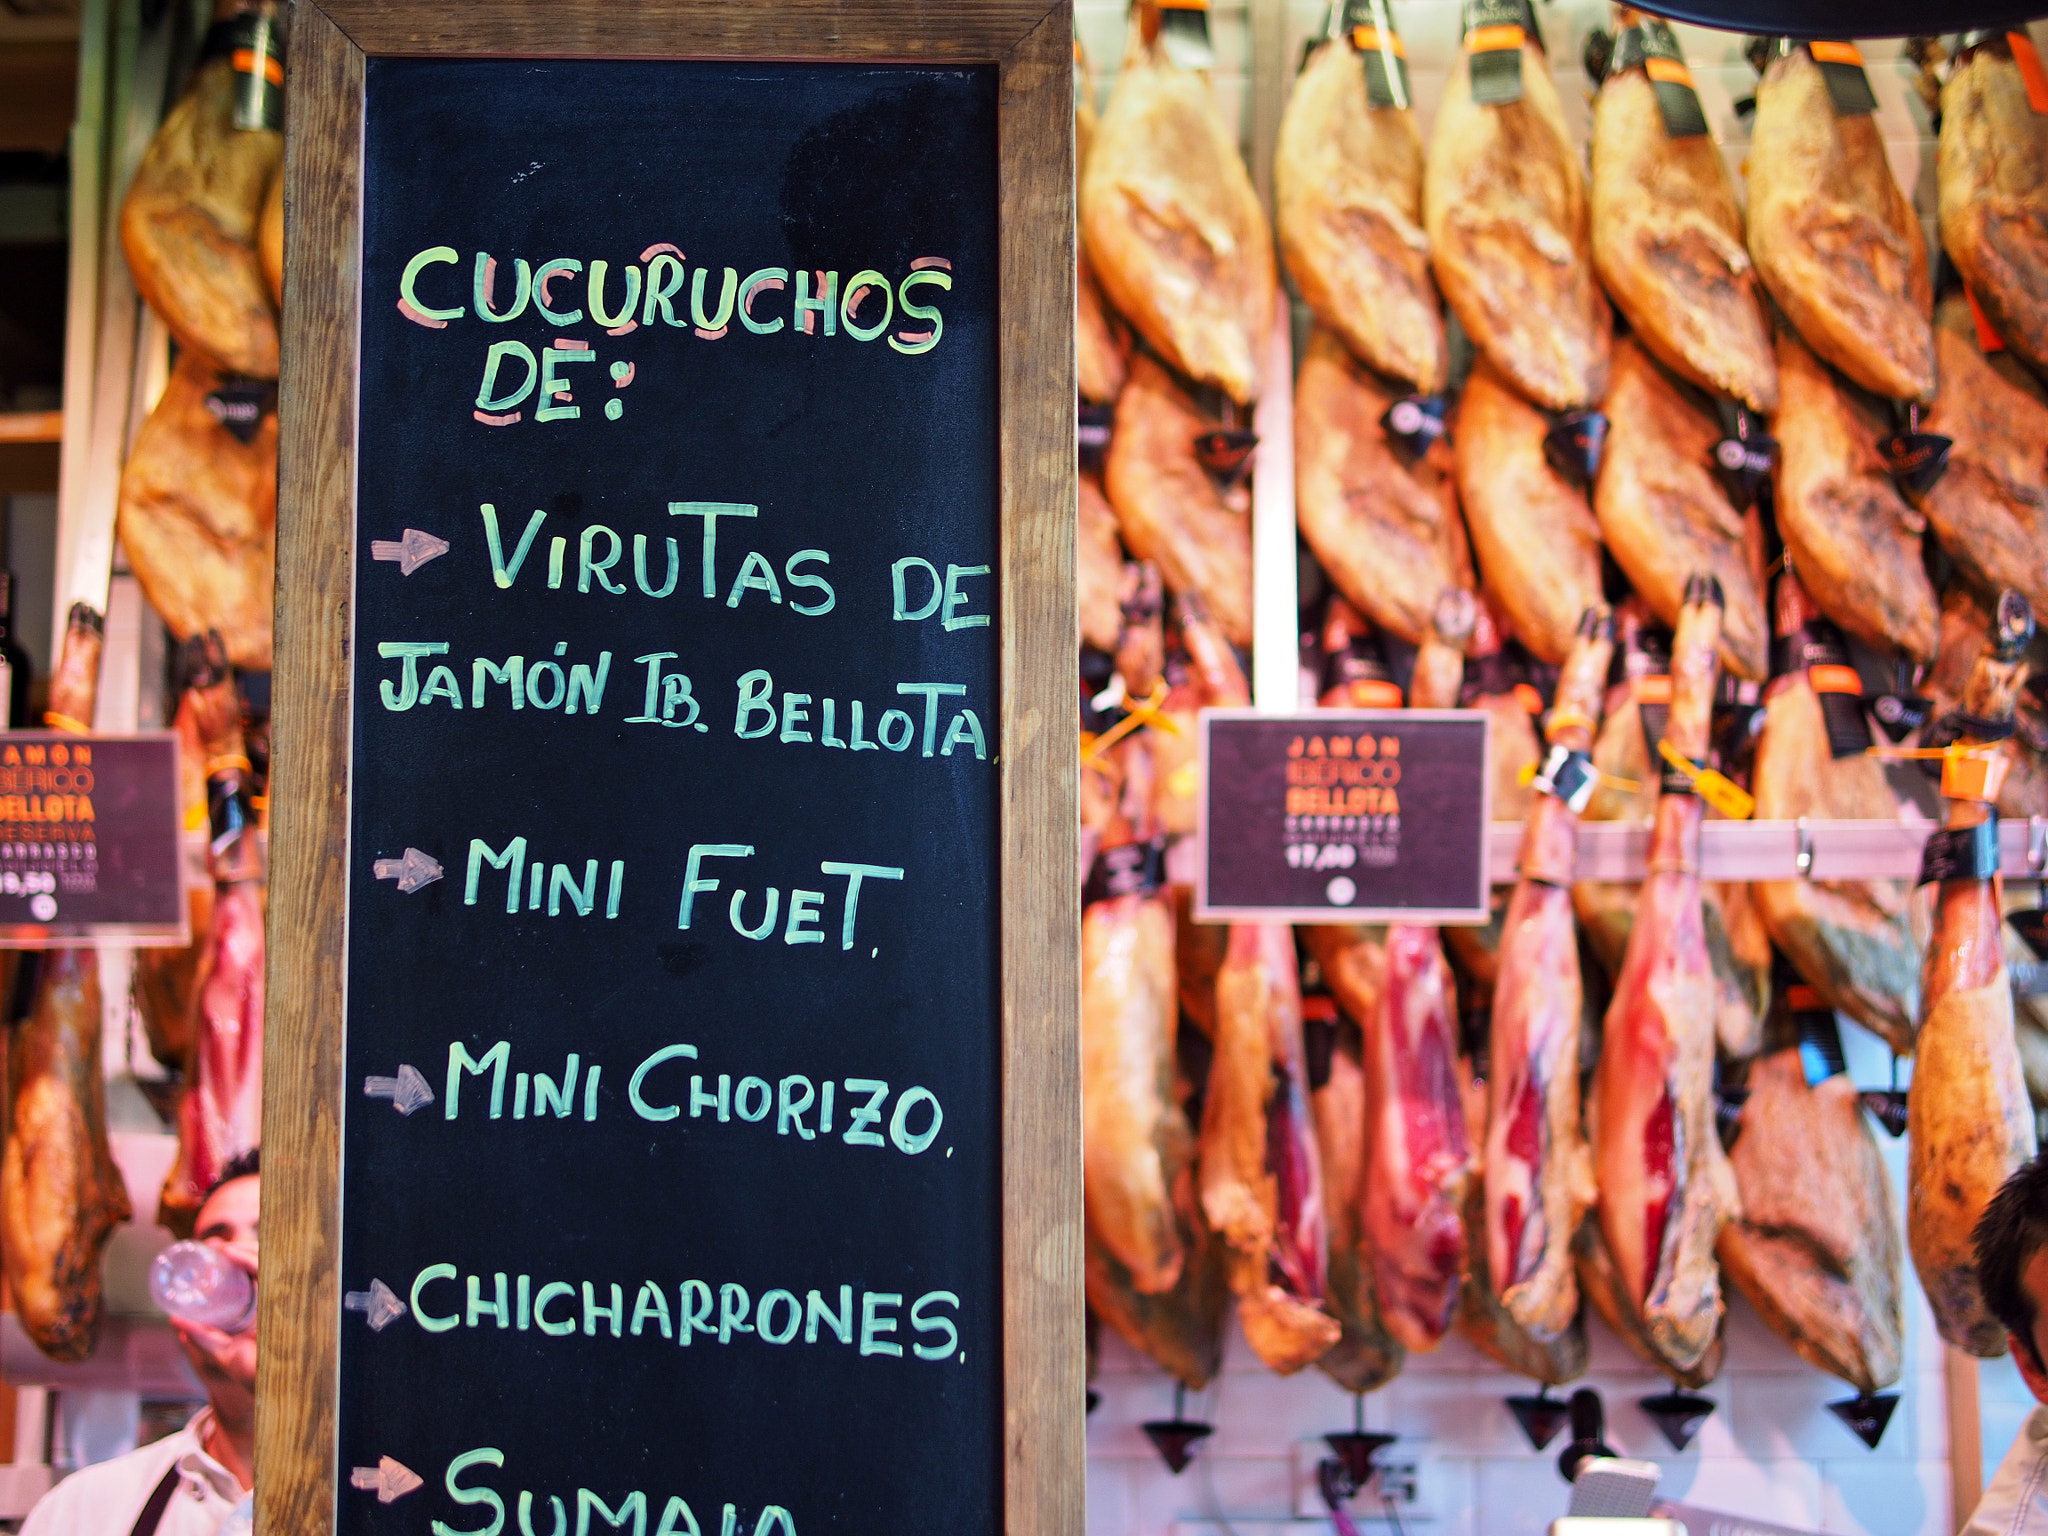 CUCURUCHOS
DE:
VIRUTAS DE
JAMÓN IB. BELLOTA.
MINI FUET.
MINI CHORIZO.
CHICHARRONES.
SUMAIA
AMÓN
BELLOTA
RESERVA
ARRASCO
JAMÓN
IBÉRICO
BELLOTA
CARRASCO